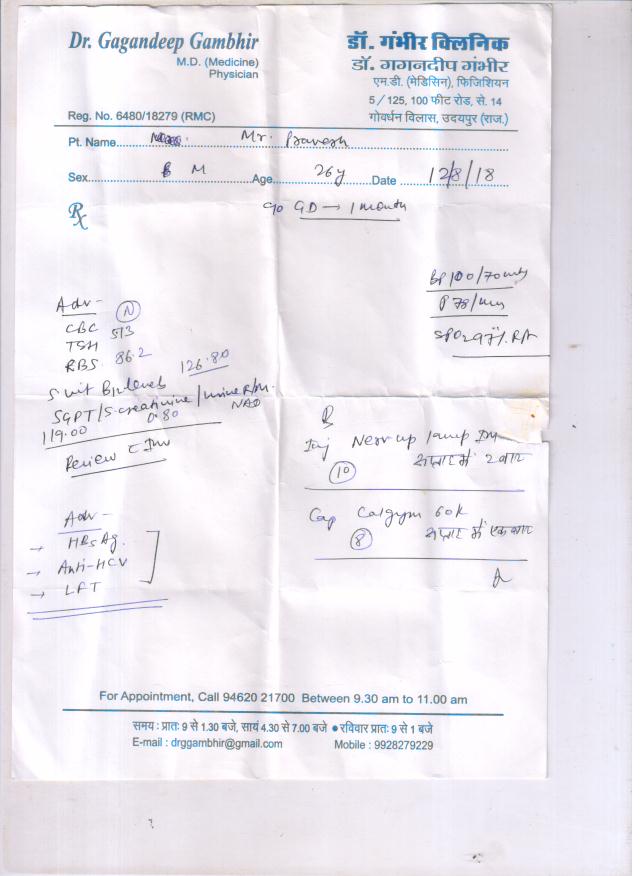 Dr. Gagandeep Gambhir
M.D. (Medicine)
Physician
Reg. No. 6480/18279 (RMC)
डॉ. गंभीर क्लिनिक
डॉ. गगनदीप गंभीर
एम.डी. (मेडिसिन), फिजिशियन
5/125, 100 फीट रोड, से. 14
गोवर्धन विलास, उदयपुर (राज.)
Pt. Name Mr. Pravesh
Sex M Age 26y Date 12/8/18
Rx
c/o GD → 1 month
BP 100/70
P 78/min
SPO2 97% RA
Adv -
CBC N
TSH 5.13
RBS 86.2
S. vit B12 levels 126.80
SGPT/S. creatinine/urine R/M.
119.00 0.80 NAD
Review c Inv
Adv -
→ HBsAg.
→ Anti-HCV
→ LFT
R
Inj Nervup 1amp IM
10 सप्ताह में 2 बार
Cap Calgym 60K
8 सप्ताह में एक बार
For Appointment, Call 94620 21700 Between 9.30 am to 11.00 am
समय : प्रातः 9 से 1.30 बजे, सायं 4.30 से 7.00 बजे ● रविवार प्रातः 9 से 1 बजे
E-mail : drggambhir@gmail.com Mobile : 9928279229